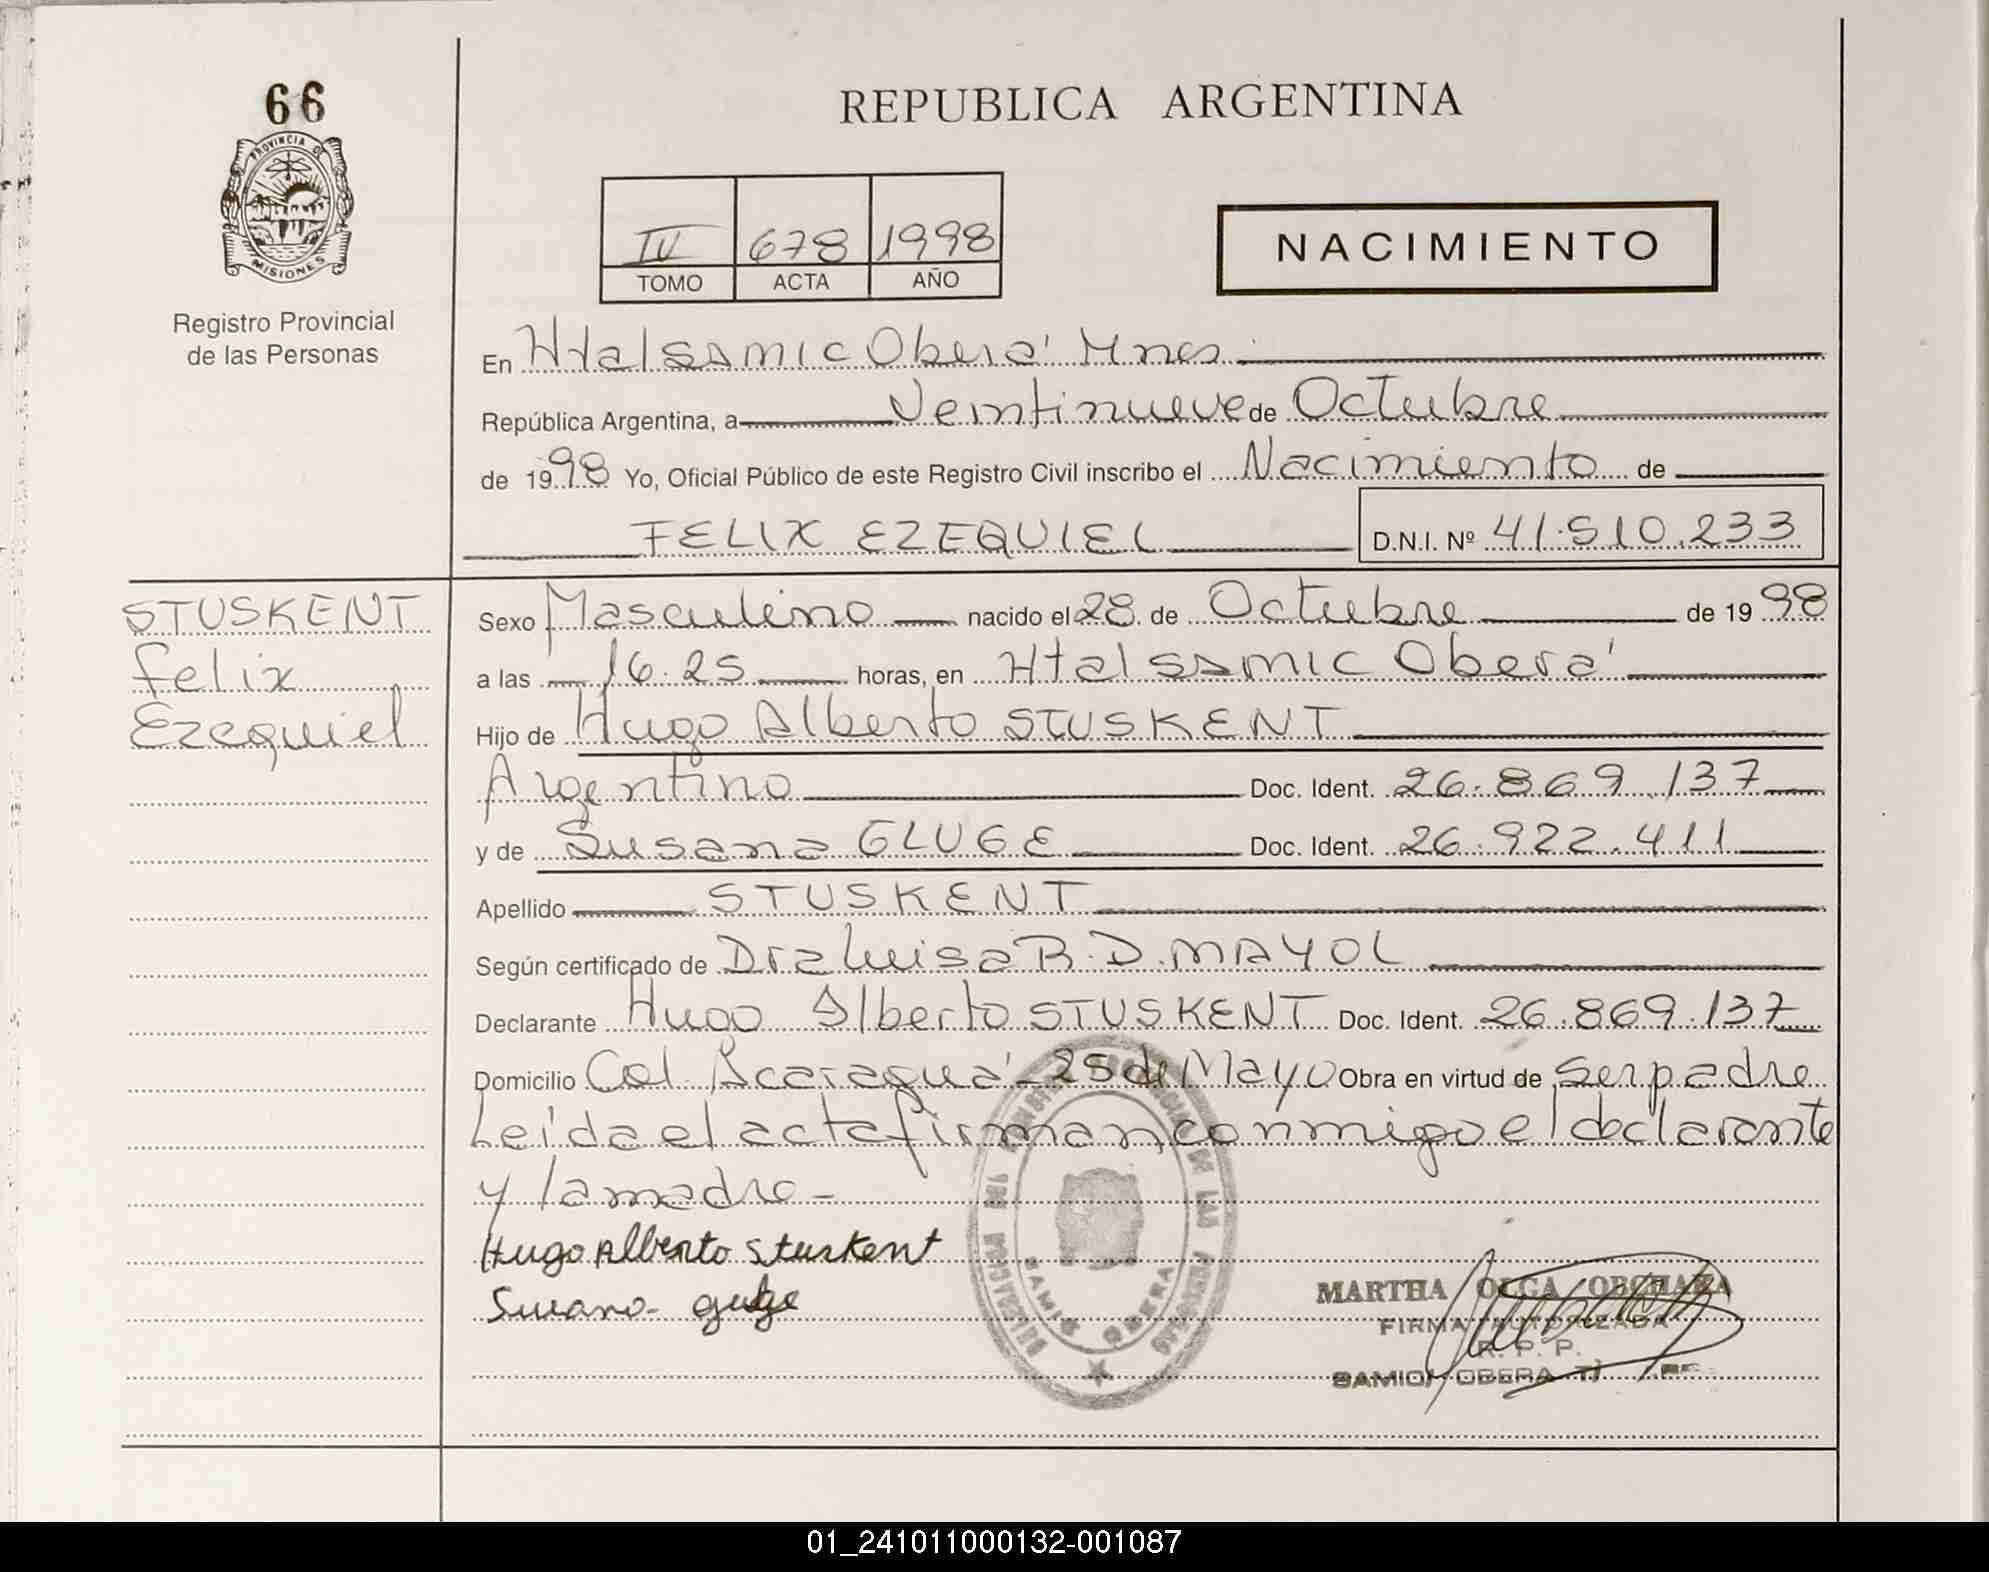 66
PROVINCIA DE
MISIONES
Registro Provincial
de las Personas
REPUBLICA ARGENTINA
IV 678 1998
TOMO ACTA AÑO
NACIMIENTO
En Htal SAMIC Oberá Mnes.
República Argentina, a Veintinueve de Octubre
de 1998 Yo, Oficial Público de este Registro Civil inscribo el Nacimiento de
FELIX EZEQUIEL D.N.I. Nº 41.510.233
STUSKENT
Felix
Ezequiel
Sexo Masculino nacido el 28 de Octubre de 1998
a las 16.25 horas, en Htal SAMIC Oberá
Hijo de Hugo Alberto STUSKENT
Argentino Doc. Ident. 26.869.137
y de Susana GLUGE Doc. Ident. 26.922.411
Apellido STUSKENT
Según certificado de Dra Luisa R.D. MAYOL
Declarante Hugo Alberto STUSKENT Doc. Ident. 26.869.137
Domicilio Col Acaragua - 25 de Mayo Obra en virtud de ser padre
Leída el acta firman conmigo el declarante
y la madre -
Hugo Alberto Stuskent
Susana gluge
SAMIC OBERA
MARTHA OLGA OBCHARA
FIRMA AUTORIZADA
R. P. P.
SAMIC OBERA
01_241011000132-001087